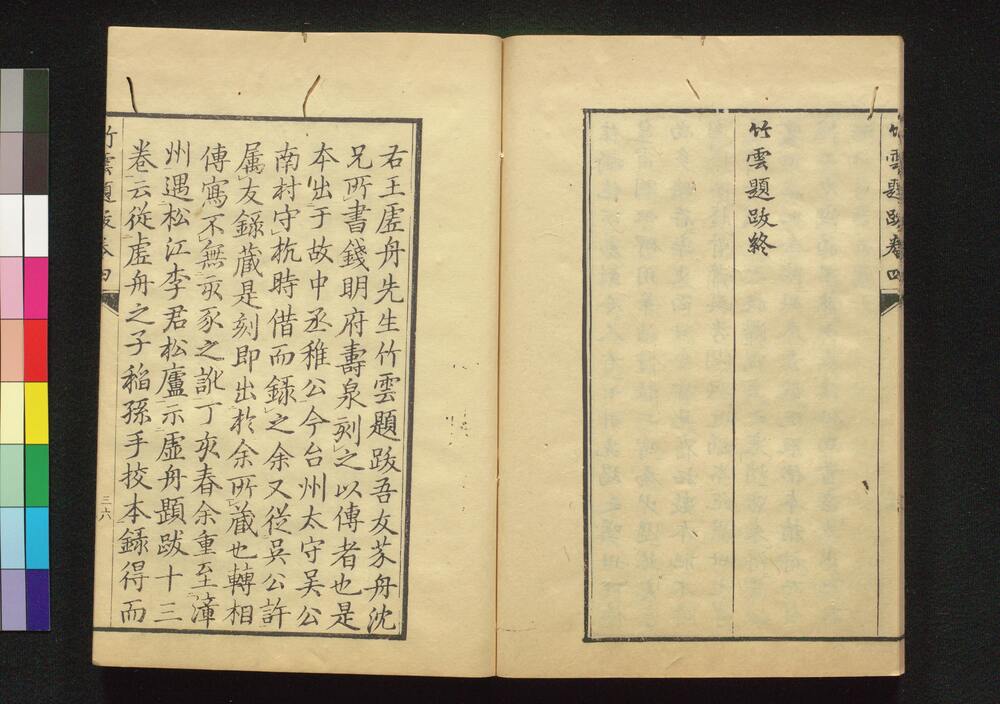 竹雲題跋卷四
竹雲題跋終
右王虛舟先生竹雲題跋吾友芥舟沈
兄所書錢明府壽泉刻之以傳者也是
本出于故中丞稚公今台州太守吴公
南村守杭時借而録之余又從吴公許
属友録蔵是刻即出於余所蔵也轉相
傳寫不無亥豕之訛丁亥春余重至漳
州遇松江李君松廬示虛舟題跋十三
卷云從虛舟之子稻孫手挍本録得而
竹雲題跋卷四
三六